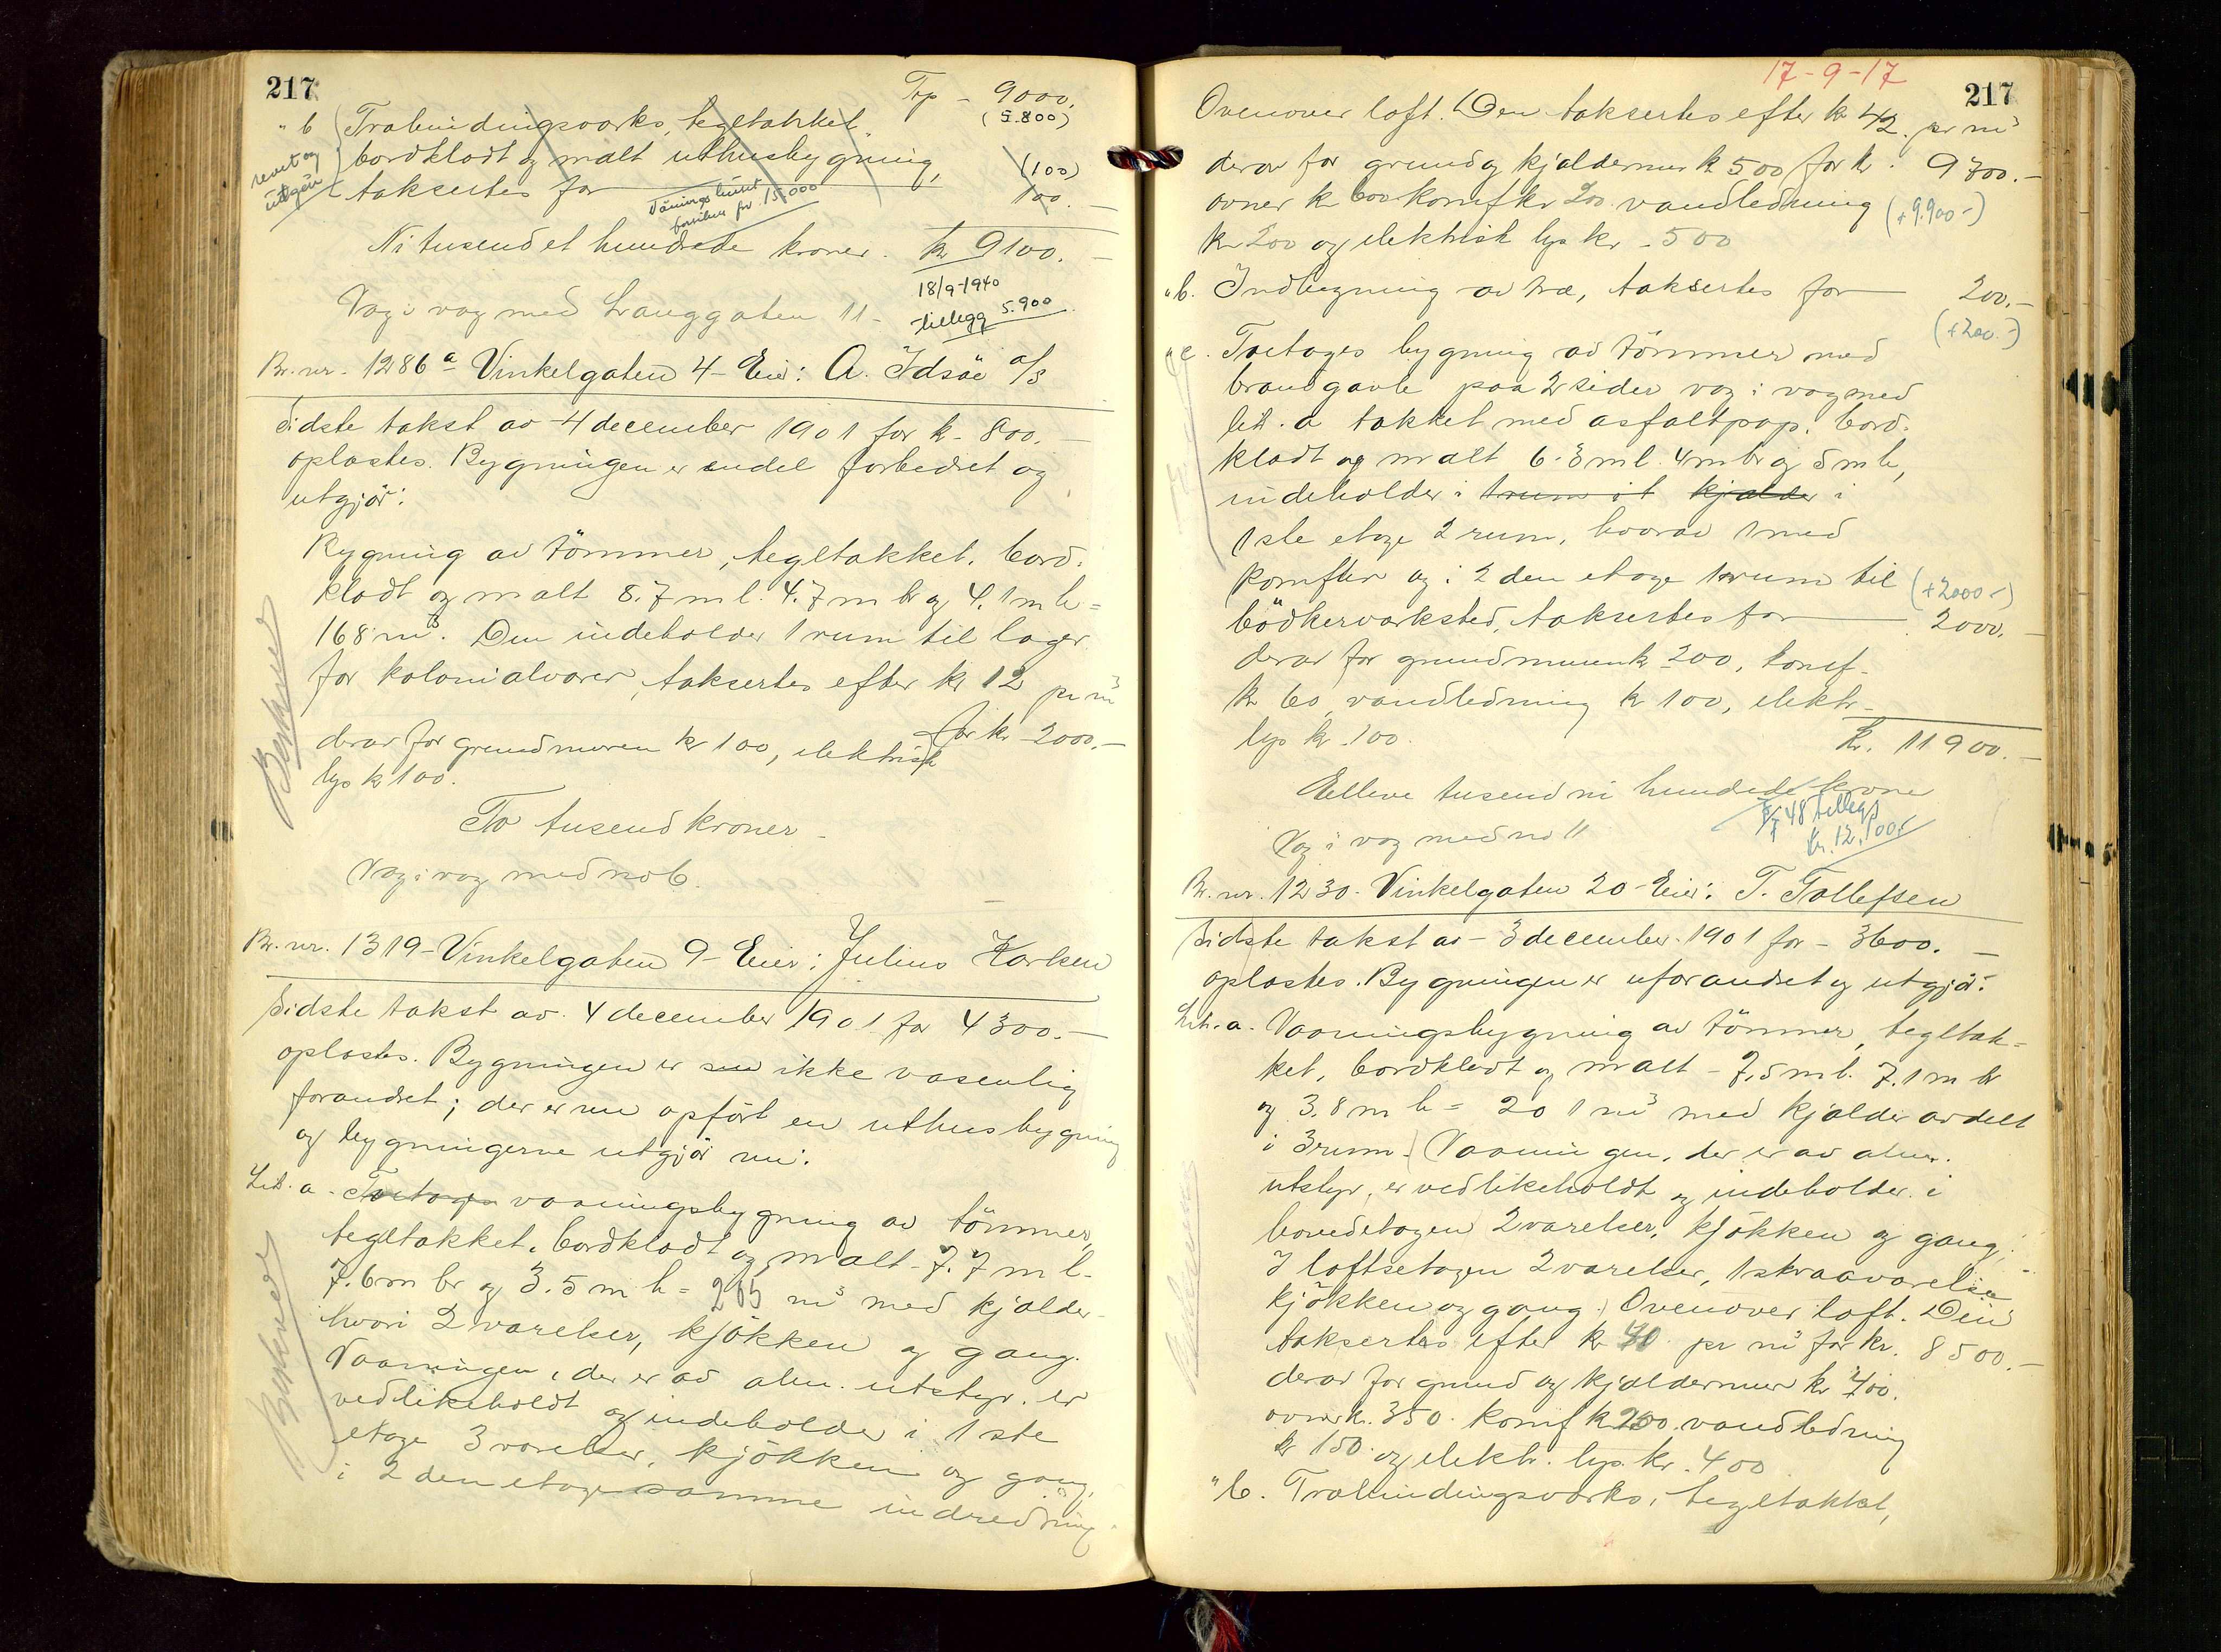 217
Trp - 9000.
(5.800)
" b Træbindingsværks, tegltækket,
bordklædt og malt uthusbygning,
revet og utgår
(100)
taksertes for 100.
Våningshuset forsikres for 15.000
Ni tusen et hundrede kroner. kr 9100.
18/9-1940
tillegg 5.900
Væg i væg med Langgaten 11-
Br. nr. 1286a Vinkelgaten 4- Eier: A. Idsöe a/s
Sidste takst av 4 december 1901 for kr. 800.-
oplæstes. Bygningen er endel forbedret og
utgjör:
Bygning av tömmer, tegltækket, bord-
klædt og malt 8.7 m l. 4.7 m br og 4.1 m h =
168 m³. Den indeholder 1 rum til lager
for kolonialvarer, taksertes efter kr 12 pr m³
for kr 2000.-
derav for grundmuren kr 100, elektrisk
lys kr 100.
To tusend kroner -
Væg i væg med no 6.
Br. nr. 1319- Vinkelgaten 9- Eier: Julius Karlsen
Sidste takst av 4 december 1901 for 4300.-
oplæstes. Bygningen er ikke væsenlig
forandret; der er nu opfört en uthusbygning
og bygningerne utgjör nu:
Lit. a. Toetages vaaningsbygning av tömmer,
tegltækket, bordklædt og malt - 7.7 m l-
7.6 m br og 3.5 m h = 205 m³ med kjælder
hvori 2 værelser, kjökken og gang.
Vaaningen, der er av alm. utstyr, er
vedlikeholdt og indeholder i 1ste
etage 3 værelser, kjökken og gang,
i 2den etage samme indredning.
17-9-17
217
Ovenover loft. Den taksertes efter kr 42. pr m³
derav for grund og kjældermur kr 500 for kr. 9700.-
ovner kr 600 komf kr 200 vandledning (+9.900-)
kr 200 og elektrisk lys kr. 500
" b. Indbygning av træ, taksertes for 200.-
(+200.-)
" c. Toetages bygning av tömmer med
brandgavle paa 2 sider væg i væg med
lit. a tækket med asfaltpap, bord-
klædt og malt 6.3 m l. 4 m br og 5 m h,
indeholder i 1 rum i kjælder i
1ste etage 2 rum, hvorav 1 med
komfur og i 2den etage 1 rum til (+2000-)
bödkerværksted, taksertes for 2000.-
derav for grundmuren kr 200, komf.
kr 60, vandledning kr 100, elektr.
lys kr. 100.
kr. 11900.-
Elleve tusend ni hundrede krone
7/7 48 tillegg
kr. 12.100
Væg i væg med no 11
Br. nr. 1230. Vinkelgaten 20- Eier: T. Tollefsen
Sidste takst av - 3 december 1901 for - 3600.-
oplæstes. Bygningen er uforandret og utgjör:
Lit. a. Vaaningsbygning av tömmer, tegltæk-
ket, bordklædt og malt - 7.5 m l. 7.1 m br
og 3.8 m h = 201 m³ med kjælder avdelt
i 3 rum. Vaaningen, der er av alm.
utstyr, er vedlikeholdt og indeholder i
hovedetagen 2 værelser, kjökken og gang,
I loftsetagen 2 værelser, 1 skraaværelse
kjökken og gang. Ovenover loft. Den
taksertes efter kr 40. pr m³ for kr. 8500.-
derav for grund og kjældermur kr 400.
ovner kr. 350. komf kr 200. vandledning
kr 150. og elektr. lys. kr. 400
" b. Træbindingsværks, tegltækket,